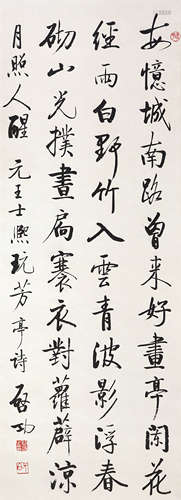 每憶城南路曾来好畫亭闌花
經雨白野竹入雲青波影浮春
砌山光撲晝扃褰衣對蘿薜涼
月照人醒 元王士熙玩芳亭詩 啓功